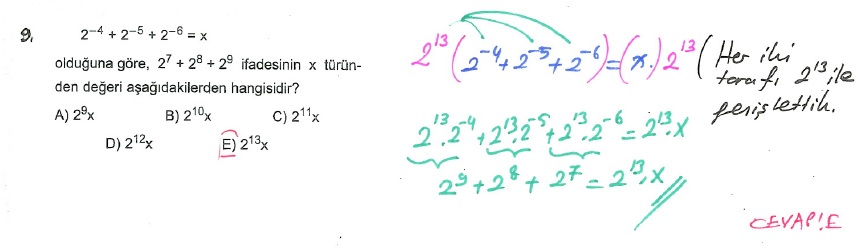 9. 2⁻⁴ + 2⁻⁵ + 2⁻⁶ = x
olduğuna göre, 2⁷ + 2⁸ + 2⁹ ifadesinin x türün-
den değeri aşağıdakilerden hangisidir?
A) 2⁹x B) 2¹⁰x C) 2¹¹x
D) 2¹²x E) 2¹³x
2¹³(2⁻⁴+2⁻⁵+2⁻⁶)=(x.)2¹³ (Her iki
tarafı 2¹³ ile
genişlettik.
2¹³.2⁻⁴+2¹³.2⁻⁵+2¹³.2⁻⁶=2¹³.x
2⁹+2⁸+2⁷=2¹³.x
CEVAP:E